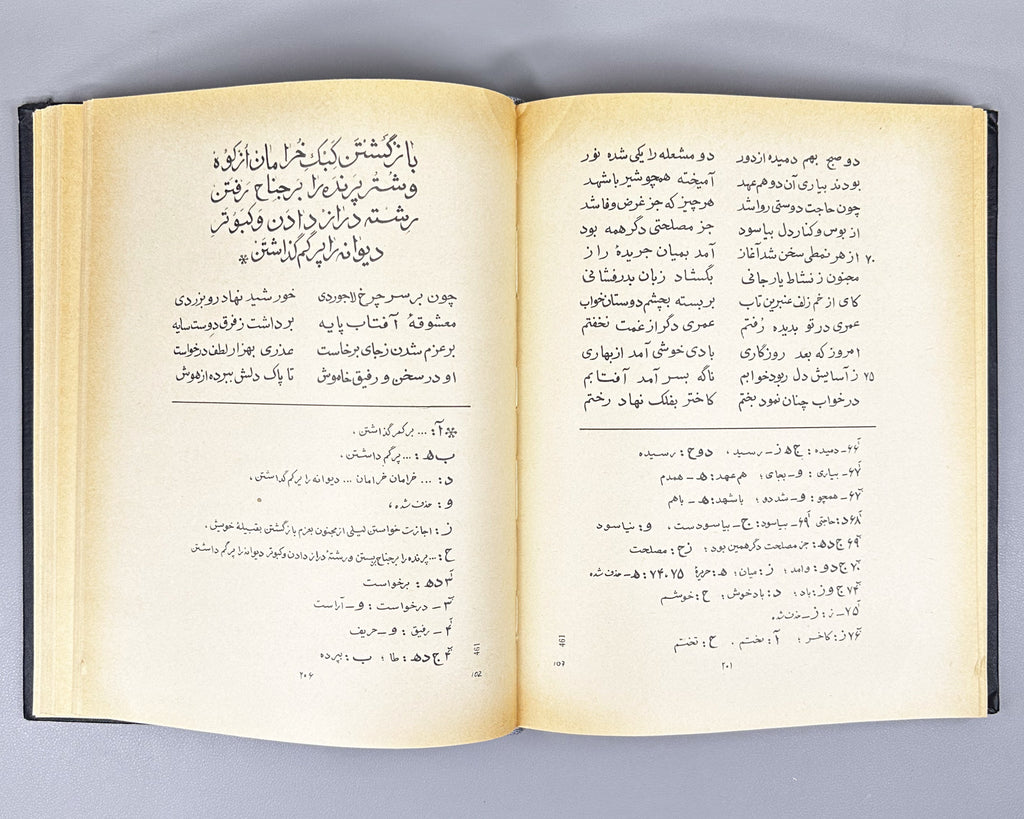 دو صبح بهم دمیده از دور دو مشعله را یکی شده نور
بودند بیاری آن دو هم عهد آمیخته همچو شیر با شهد
چون حاجت دوستی روا شد هر چیز که جز غرض وفا شد
از بوس و کنار دل بیاسود جز مصلحتی دگر همه بود
۷۰ از هر نمطی سخن شد آغاز آمد بمیان جریدهٔ راز
مجنون ز نشاط یار جانی بگشاد زبان بدرفشانی
کای از خم زلف عنبرین تاب بر بسته بچشم دوستان خواب
عمری در تو بدیده رفتم عمری دگر از غمت نخفتم
امروز که بعد روزگاری بادی خوشی آمد از بهاری
۷۵ ز آسایش دل ربود خوابم ناگه بسر آمد آفتابم
در خواب چنان نمود بختم کاختر بفلک نهاد رختم
۶۶ـ دمیده : ج ه ز ـ رسید . د و ح : رسیده
۶۷ـ بیاری : و ـ بجای ؛ هم عهد : ه ـ همدم
۶۷ـ همچو : و ـ شد دو ؛ با شهد : ه ـ باهم
۶۸ د : حاجتی ۶۹ـ بیاسود : ج ـ بیاسودست . و : نیاسود
۶۹ ج د ه : جز مصلحت دگر همین بود ؛ ز ح : مصلحت
۷۰ ج د و : وامد ؛ ز : میان ؛ ه : جریزهٔ ۷۴،۷۵ : ه ـ حذف شده
۷۴ ج و ز : باد ؛ د : باد خوش ؛ ح : خوشم
۷۵ـ ز : ز ـ حذف شد
۷۶ ز : کاخر ؛ آ : بختم . ح : تختم
461
102
۲۰۱
باز گشتن کبک خرامان از کوه
و شتر پرنده را بر جناح رفتن
رشته دراز دادن و کبوتر
دیوانه را پر گم گذاشتن *
چون بر سر چرخ لاجوردی خورشید نهاد رو بزردی
معشوقهٔ آفتاب پایه برداشت ز فرق دوست سایه
بر عزم شدن ز جای برخاست عذری بهزار لطف درخواست
او در سخن و رفیق خاموش تا پاک دلش ببرد از هوش
* آ : ... بر کمر گذاشتن .
ب ه : ... پر گم داشتن .
د : ... خرامان خرامان ... دیوانه را پر گم گذاشتن .
و : حذف شده ؛
ز : اجازت خواستن لیلی از مجنون بعزم بازگشتن بقبیلهٔ خویش .
ح : ... پرنده را بر جناح بستن و رشته دراز دادن و کبوتر دیوانه را پر گم داشتن
۳ د ه : برخواست
۳ـ درخواست : و ـ آراست
۴ـ رفیق : و ـ حریف
۴ ج د ه : طا ؛ ب : بپرده
461
102
۲۰۶